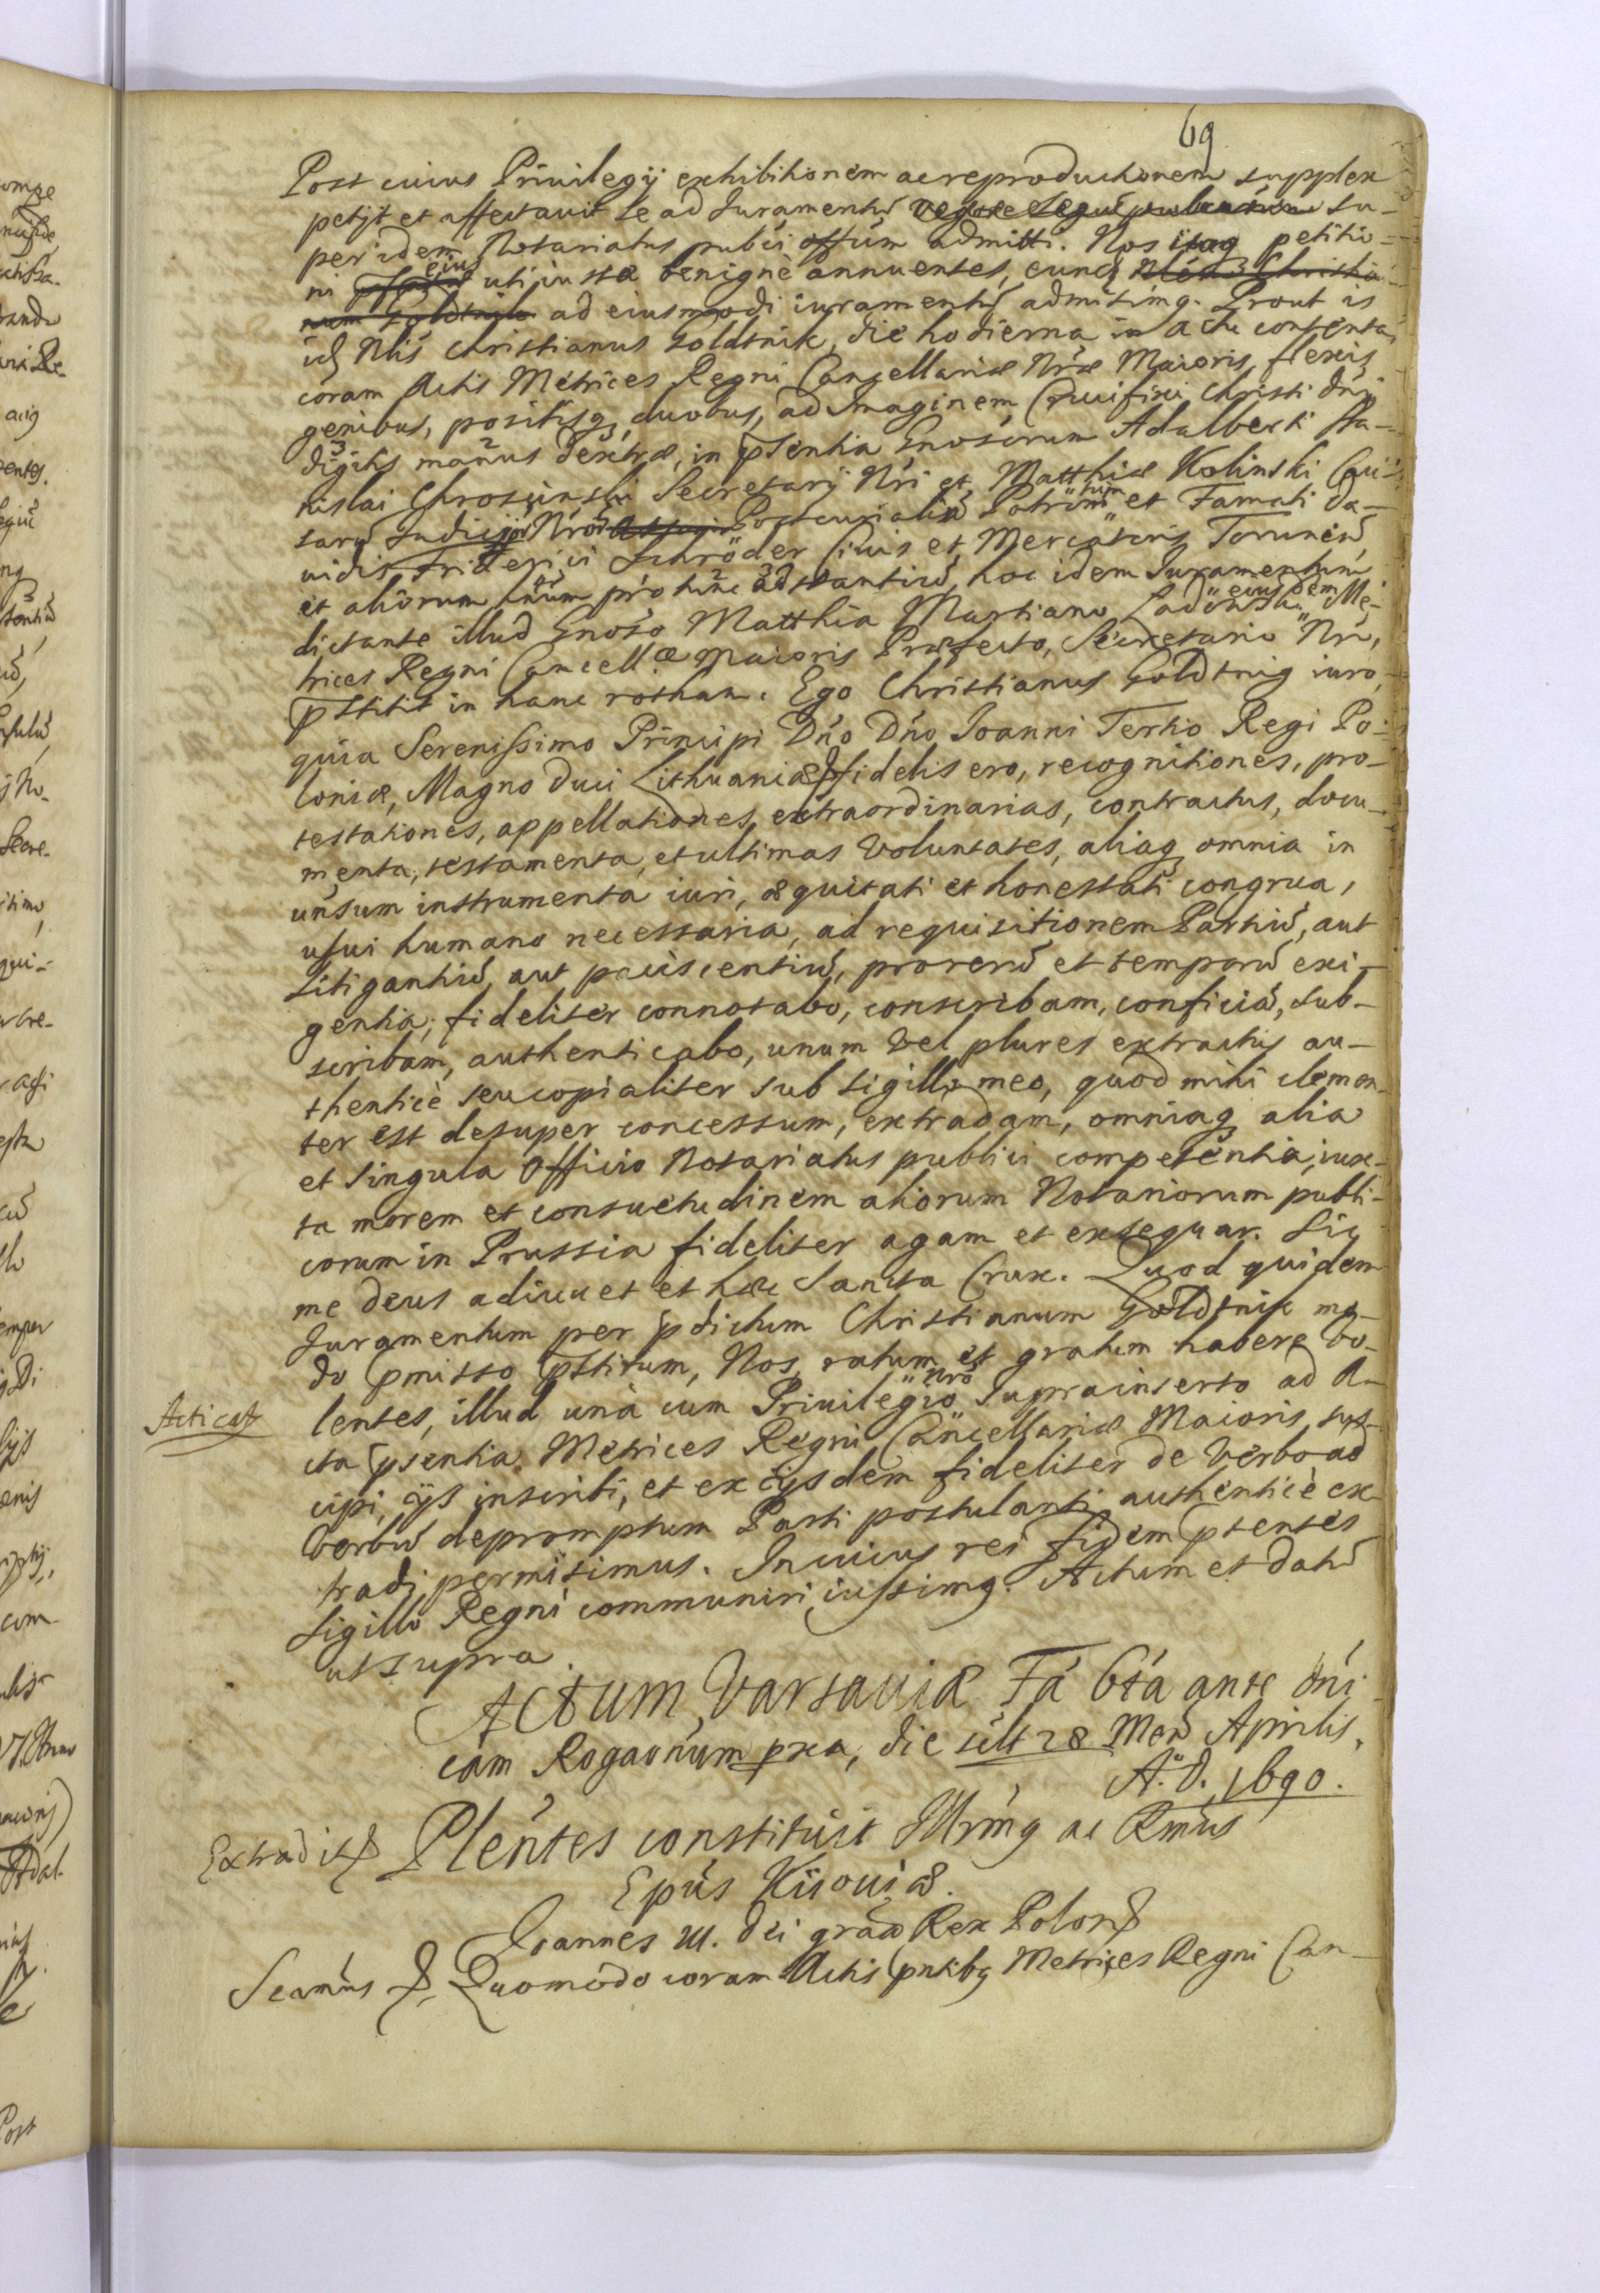 69
Post cuius Privilegij exhibitionem ac reproductionem supplex
petijt et affectavit se ad Juramentū su-
per idem Notariatus publici offm̄ admitti. Nos itaq petitio-
ni eius uti iustæ benignè annuentes, eundē
ad eiusmodi iuramentū admisimq. Prout is
idē Nlis Christianus Goldtnik, die hodierna in actu contenta,
coram Actis Metrices Regni Cancellariæ Nræ Maioris, flexis
genibus, positisq duobus, ad Imaginem Crucifixi Christi Dni,
digitis manus dextræ, in pñsentia Gnosorum Adalberti Sta-
nislai Chrosciński Secretarij Nri et Matthiæ Kolinski Cau-
sarū Judicior Nror Postcurialiū Patroni et Famati Da-
uidis Friderici Schröder Ciuis et Mercatoris Torunen
et aliorum pro tunc adstantiū, hoc idem Juramentum
dictante illud Gnoso Matthia Martiano Ladinski eiusdem Me-
trices Regni Cancellæ Maioris Præfecto, Secretario Nro,
pstitit in hanc rotham. Ego Christianus Goldtnig iuro,
quia Serenissimo Principi Dno Dno Joanni Tertio Regi Po-
loniæ, Magno Duci Lithuaniæ fidelis ero, recognitiones, pro-
testationes, appellationes, extraordinarias, contractus, docu-
menta, testamenta, et ultimas voluntates, aliaq omnia in
unsum instrumenta iuri, æquitati et honestati congrua,
usui humano necessaria, ad requisitionem Partiū, aut
litigantiū, aut paciscentiū, pro rerū et temporū exi-
gentia, fideliter connotabo, conscribam, conficiā, sub-
scribam, authenticabo, unum vel plures extractus au-
thenticè seu copialiter sub sigillo meo, quod mihi clemen-
ter est desuper concessum, extradam, omniaq alia
et singula Officio Notariatus publici competentia, iux-
ta morem et consuetudinem aliorum Notariorum publi-
corum in Prussia fideliter agam et exsequar. Sic
me Deus adiuuet et hæc Sancta Crux. Quod quidem
Juramentum per pdictum Christianum Goldtnik mo-
do pmisso pstitum, Nos, ratum et gratum habere vo-
lentes, illud unà cum Privilegio nro suprainserto ad A-
cta psentia Metrices Regni Cancellariæ Maioris, sus-
cipi, ijs inscribi, et ex ijsdem fideliter de verbo ad
verbū depromptum Parti postulanti authenticè ex-
tradi permisimus. In cuius rei fidem psentes
Sigillo Regni communiri iussimq. Actum et datū
ut supra.
Acticat
Actum Varsaviæ Fa 6ta ante Dni-
cam Rogaonum pxa, die 28 Men Aprilis,
A. D. 1690.
Extradit Plentes constituit Illrimq ac Rmus
Epus Kiioviæ.
Joannes III. Dei gratia Rex Polon
Seamus Quomodo coram Actis pntibq Metrices Regni Can-